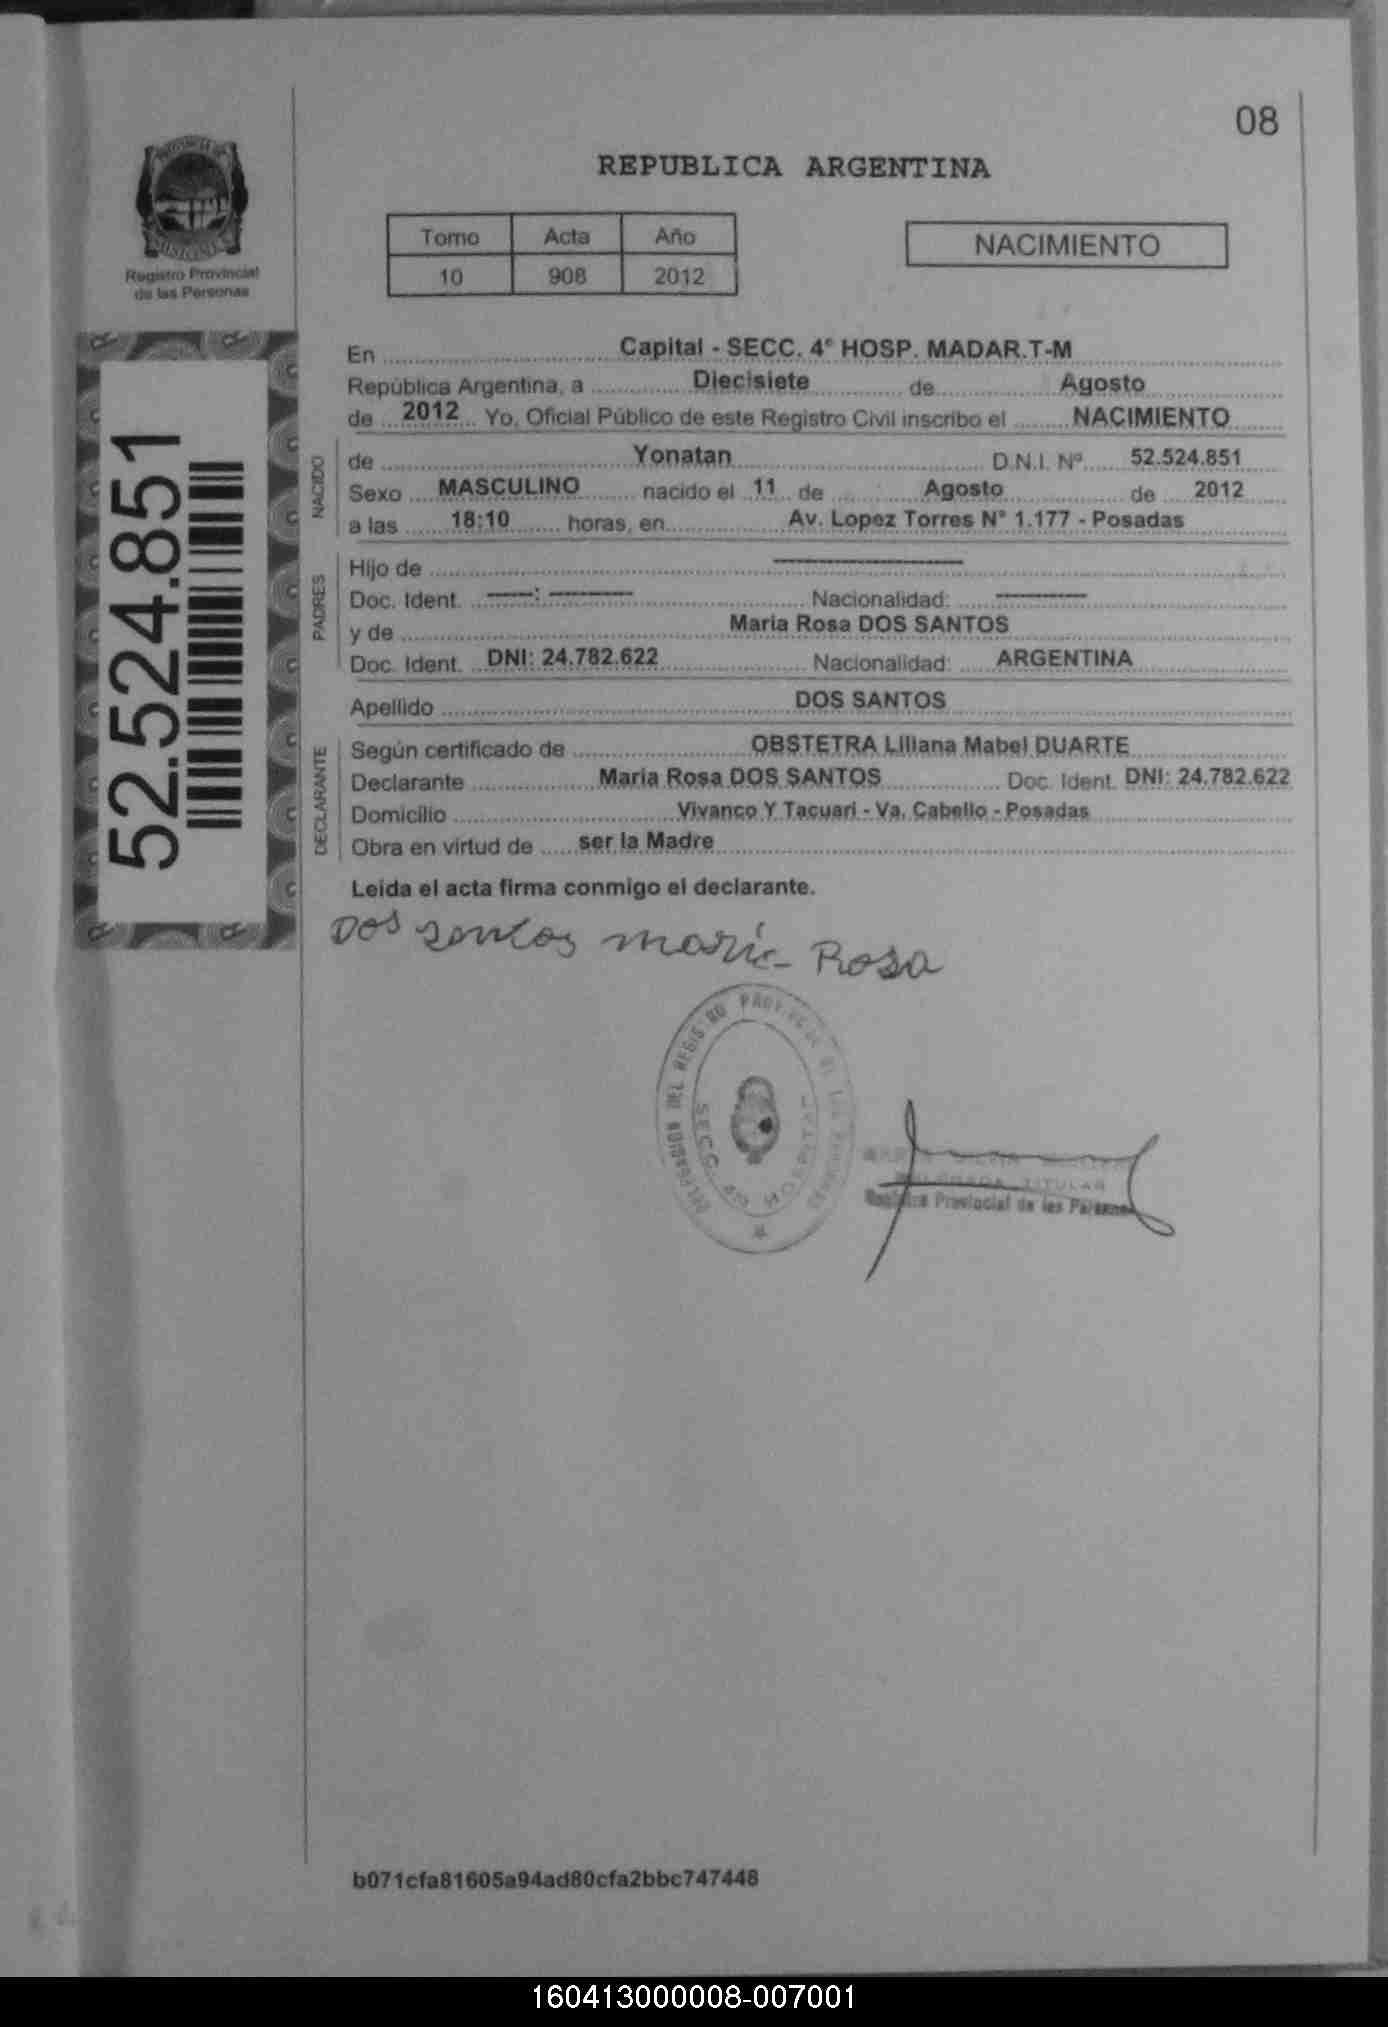 08
REPUBLICA ARGENTINA
Registro Provincial
de las Personas
Tomo Acta Año
10 908 2012
NACIMIENTO
52.524.851
En Capital - SECC. 4º HOSP. MADAR.T-M
República Argentina, a Diecisiete de Agosto
de 2012 Yo, Oficial Público de este Registro Civil inscribo el NACIMIENTO
NACIDO
de Yonatan D.N.I. Nº 52.524.851
Sexo MASCULINO nacido el 11 de Agosto de 2012
a las 18:10 horas, en Av. Lopez Torres N° 1.177 - Posadas
PADRES
Hijo de ----------
Doc. Ident. -----: --------- Nacionalidad: ----------
y de Maria Rosa DOS SANTOS
Doc. Ident. DNI: 24.782.622 Nacionalidad: ARGENTINA
Apellido DOS SANTOS
DECLARANTE
Según certificado de OBSTETRA Liliana Mabel DUARTE
Declarante Maria Rosa DOS SANTOS Doc. Ident. DNI: 24.782.622
Domicilio Vivanco Y Tacuari - Va. Cabello - Posadas
Obra en virtud de ser la Madre
Leida el acta firma conmigo el declarante.
Dos Santos Maria Rosa
DELEGACION DEL REGISTRO PROVINCIAL DE LAS PERSONAS
SECC. 4º HOSPITAL
TITULAR
Registro Provincial de las Personas
b071cfa81605a94ad80cfa2bbc747448
160413000008-007001